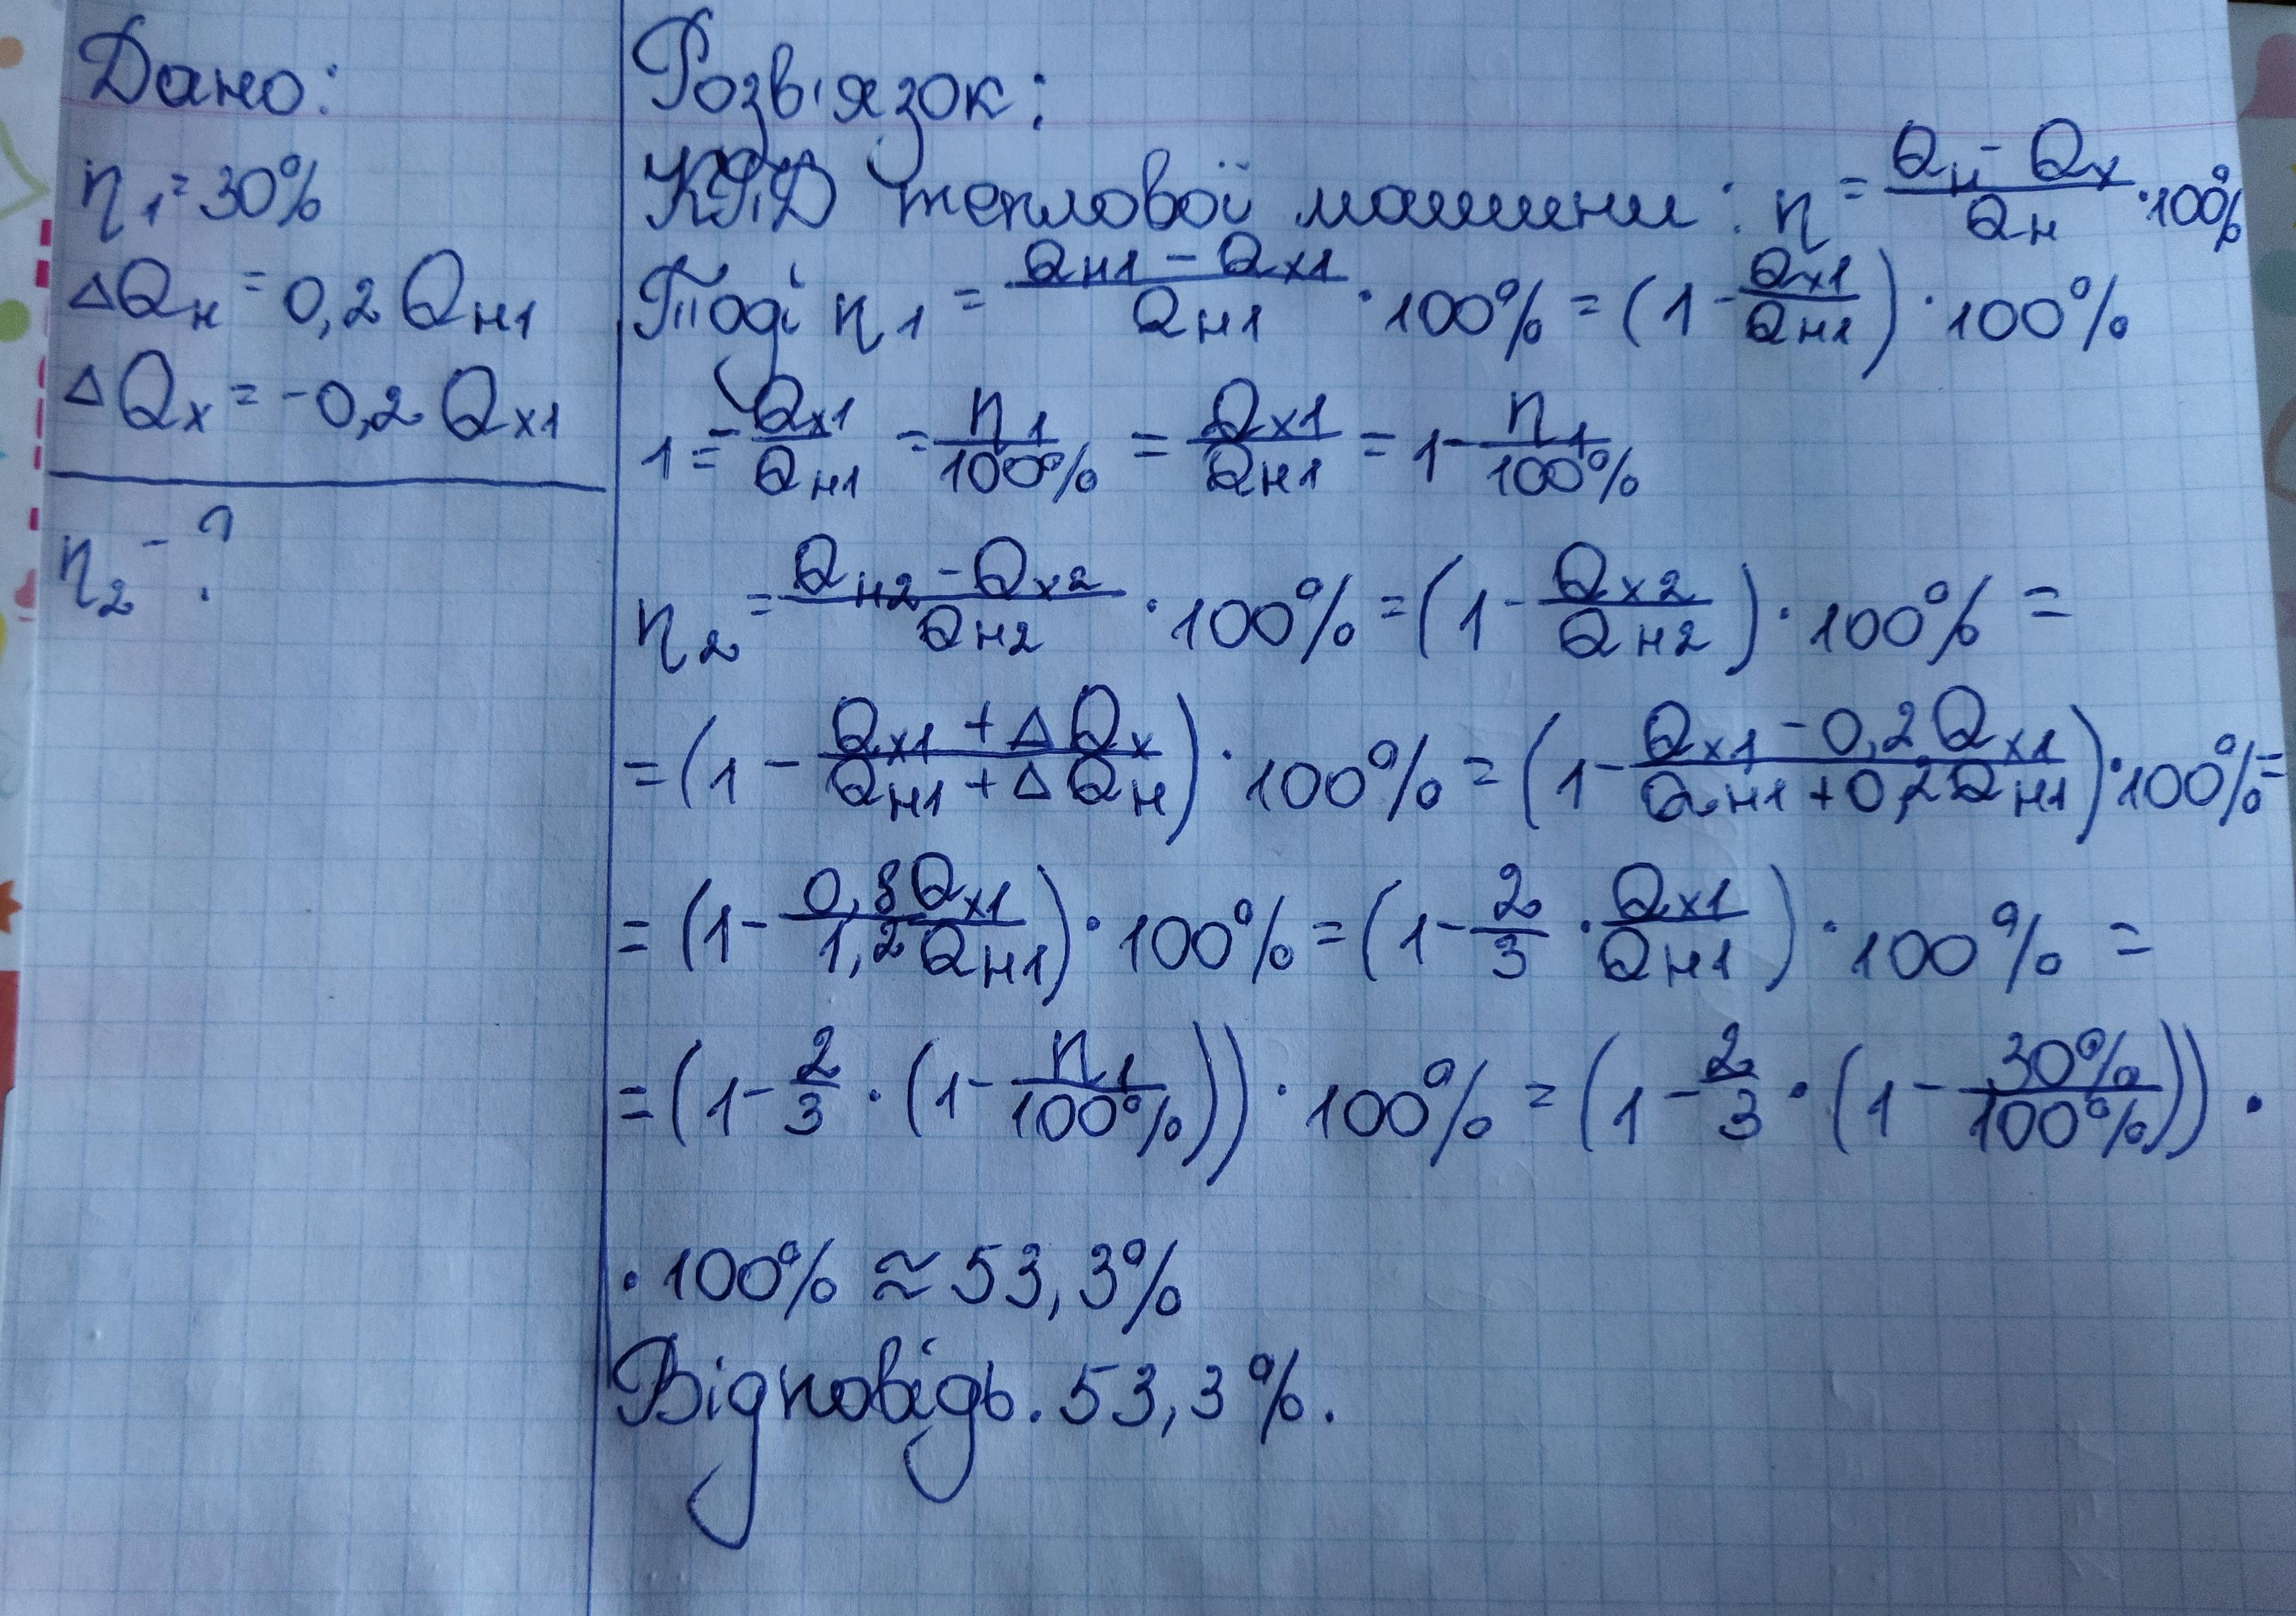 Дано:
η₁ = 30%
ΔQн = 0,2 Qн1
ΔQх = -0,2 Qх1
η₂ - ?
Розв'язок:
ККД теплової машини: η = (Qн - Qх)/Qн · 100%
Тоді η₁ = (Qн1 - Qх1)/Qн1 · 100% = (1 - Qх1/Qн1) · 100%
1 = - Qх1/Qн1 = η₁/100% = Qх1/Qн1 = 1 - η₁/100%
η₂ = (Qн2 - Qх2)/Qн2 · 100% = (1 - Qх2/Qн2) · 100% =
= (1 - (Qх1 + ΔQх)/(Qн1 + ΔQн)) · 100% = (1 - (Qх1 - 0,2Qх1)/(Qн1 + 0,2Qн1)) · 100% =
= (1 - 0,8Qх1/1,2Qн1) · 100% = (1 - 2/3 · Qх1/Qн1) · 100% =
= (1 - 2/3 · (1 - η₁/100%)) · 100% = (1 - 2/3 · (1 - 30%/100%)) ·
· 100% ≈ 53,3%
Відповідь. 53,3%.